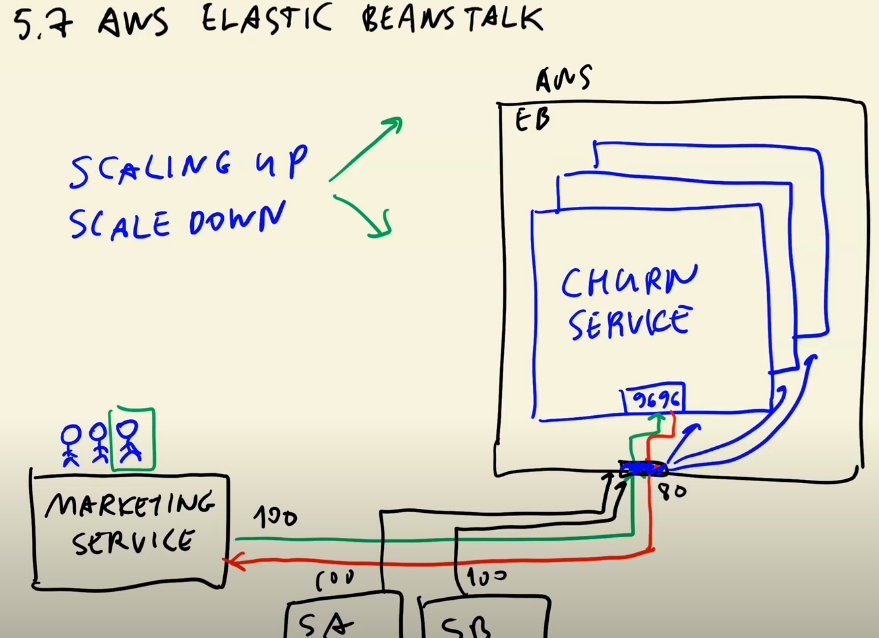 5.7 AWS ELASTIC BEANSTALK
AWS
EB
SCALING UP
SCALE DOWN
CHURN
SERVICE
9696
80
MARKETING
SERVICE
100
100
100
SA
SB